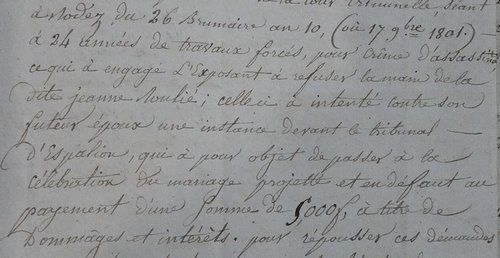 la Cour Criminelle, séant
à Rodez du 26 Brumaire an 10, (où 17 9bre 1801.) —
à 24 années de travaux forcés, pour Crime d'assassinat
ce qui à engagé L'Exposant à refuser la main de la
dite jeanne Moulié; celle ci à intenté contre son
futeur époux une instance devant le tribunal —
d'Espalion, qui à pour objet de passer à la
célébration du mariage projetté et en défaut au
payement d'une somme de 5,000f, à titre de
Dommâges et intérêts. pour répousser ces demandes